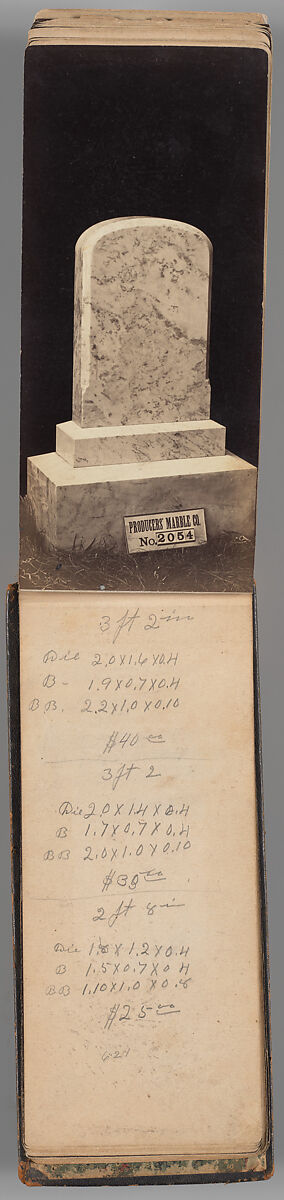 PRODUCERS' MARBLE CO.
No. 2054
3 ft 2 in
Die 2.0 x 1.6 x 0.4
B - 1.9 x 0.7 x 0.4
B B. 2.2 x 1.0 x 0.10
$40 00
3 ft 2
Die 2.0 x 1.4 x 0.4
B 1.7 x 0.7 x 0.4
BB 2.0 x 1.0 x 0.10
$39 00
2 ft 8 in
Die 1.8 x 1.2 x 0.4
B 1.5 x 0.7 x 0 4
BB 1.10 x 1.0 x 0.8
$25 00